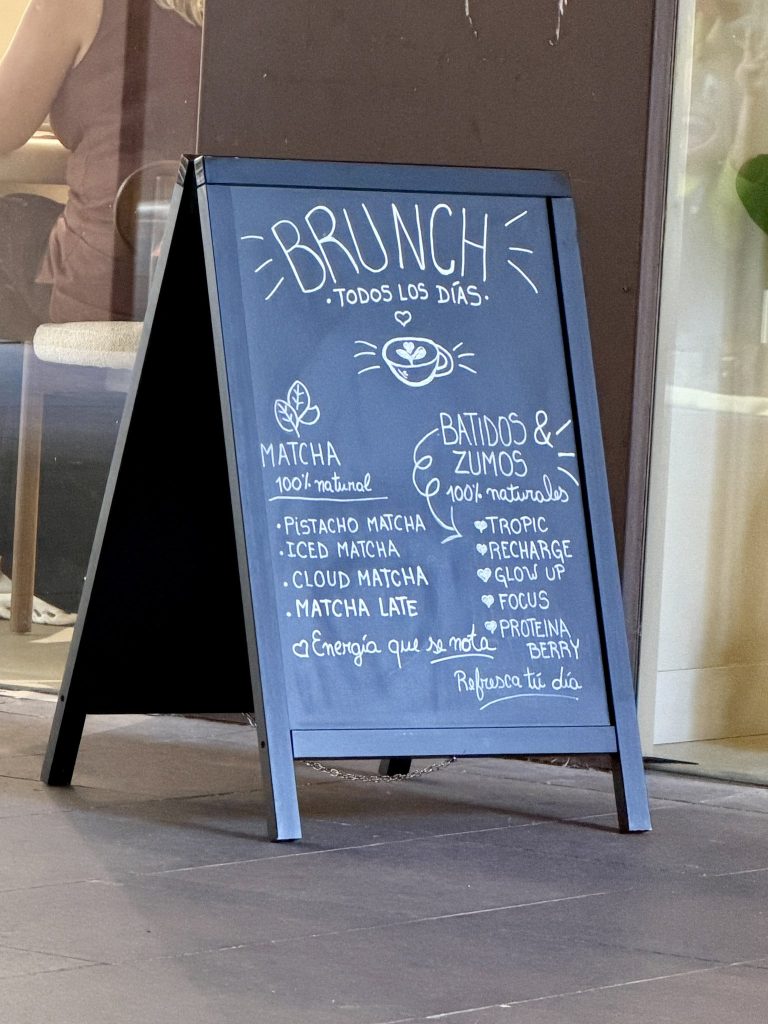 BRUNCH
·TODOS LOS DÍAS·
MATCHA
100% natural
·PISTACHO MATCHA
·ICED MATCHA
·CLOUD MATCHA
·MATCHA LATE
♡Energía que se nota
BATIDOS &
ZUMOS
100% naturales
♥TROPIC
♥RECHARGE
♥GLOW UP
♥FOCUS
♥PROTEINA
BERRY
Refresca tú día